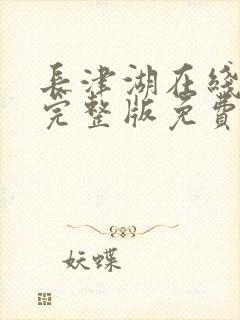 長津湖在綫
完整版免費
妖蝶